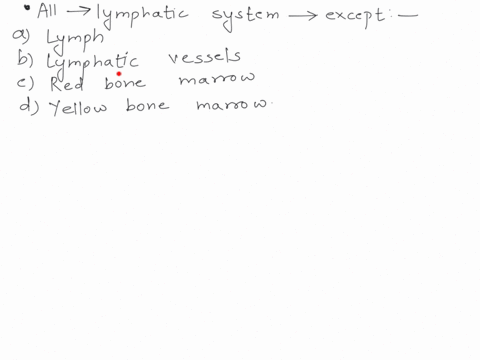 • All → lymphatic system → except: —
a) Lymph
b) Lymphatic vessels
c) Red bone marrow
d) Yellow bone marrow.